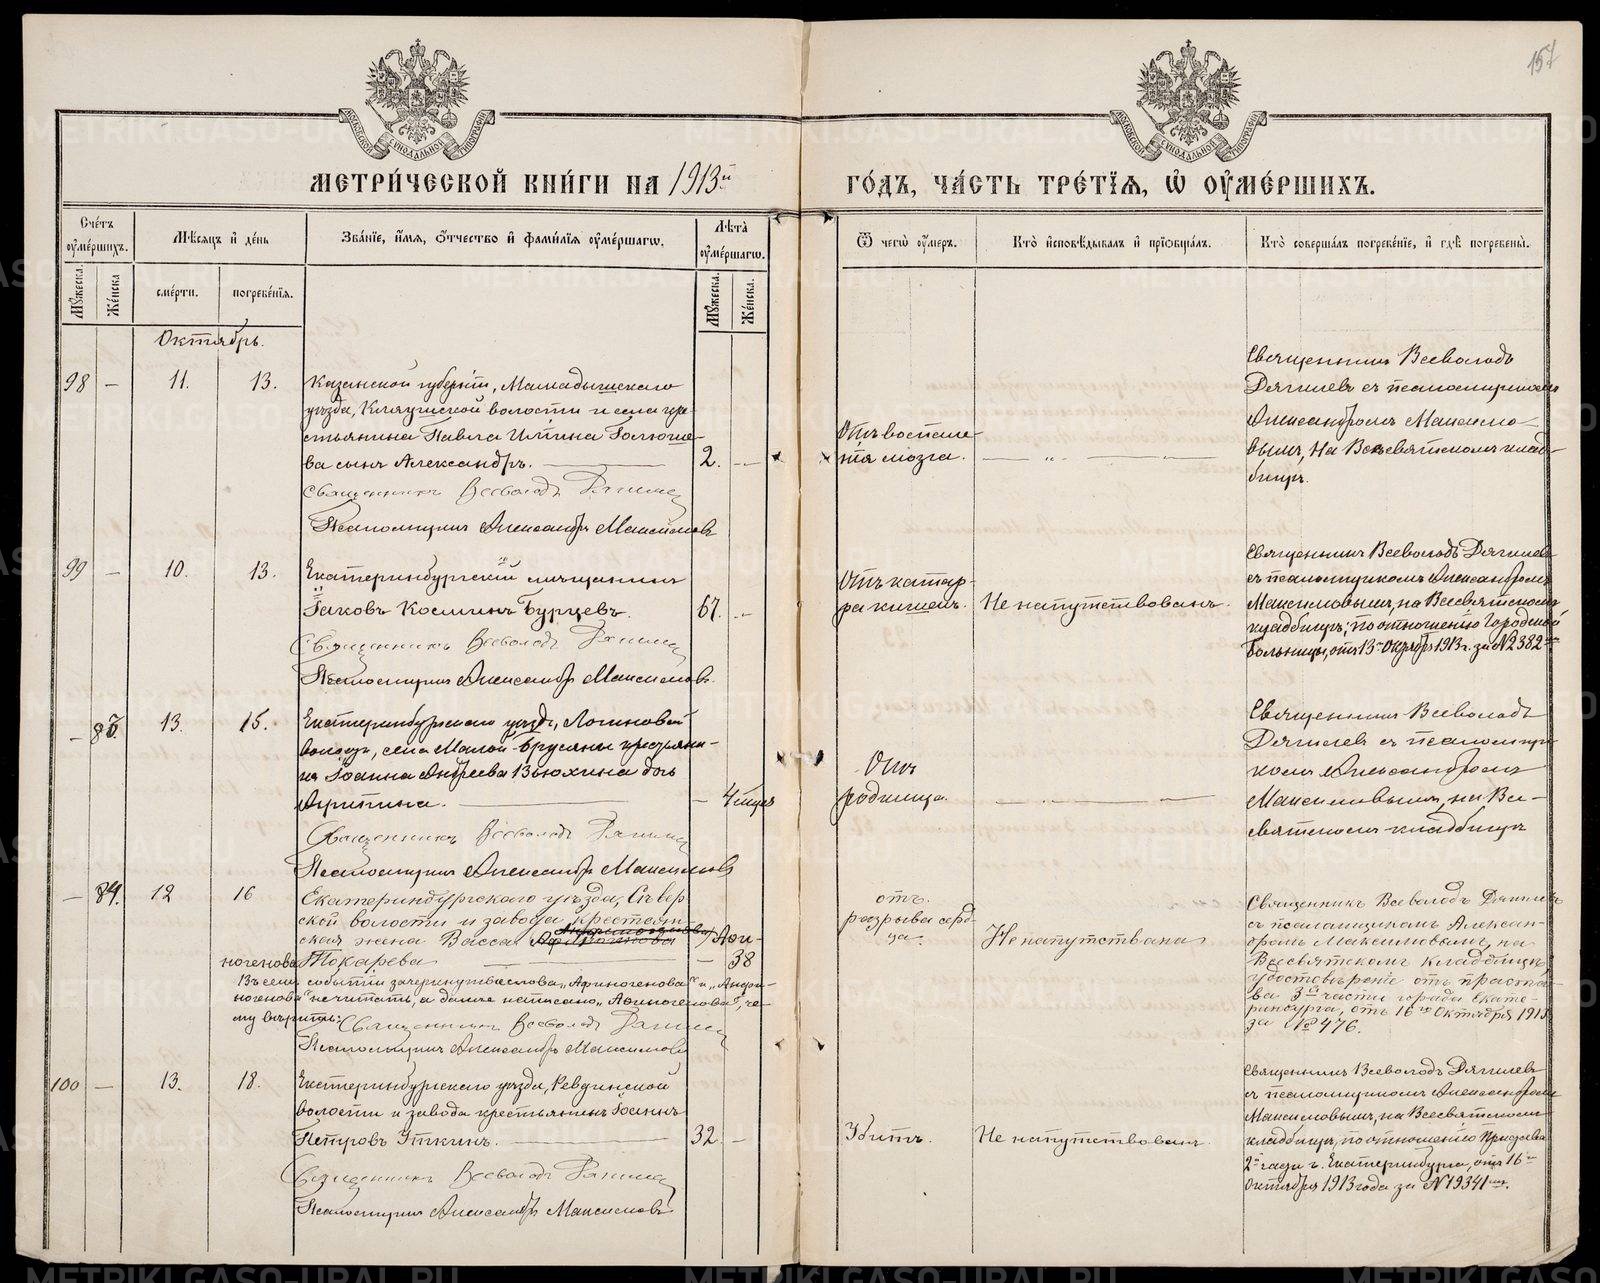 157
МОСКОВСКОЙ СѴНОДАЛЬНОЙ ТИПОГРАФІИ
МОСКОВСКОЙ СѴНОДАЛЬНОЙ ТИПОГРАФІИ
МЕТРИ́ЧЕСКОЙ КНИ́ГИ НА 1913й
ГО́ДЪ, ЧА́СТЬ ТРЕ́ТІѦ, Ѡ҆ ОУ҆МЕ́РШИХЪ.
Сче́тъ оу҆ме́ршихъ.
Мѣ́сѧцъ и҆ де́нь
Зва́нїе, и҆́мѧ, ѻ҆́тчество и҆ фами́лїѧ оу҆ме́ршагѡ.
Лѣ́та̀ оу҆ме́ршагѡ.
Мꙋ́жеска.
Же́нска
сме́рти.
погребе́нїѧ.
Мꙋ́жеска.
Же́нска.
Ѿ чегѡ̀ оу҆́меръ.
Кто̀ и҆сповѣ́дывалъ и҆ прїѻбща́лъ.
Кто̀ соверша́лъ погребе́нїе, и҆ гдѣ̀ погребены̀.
Октябрь.
98 — 11. 13.
Казанской губерніи, Мамадышскаго
уѣзда, Кляушской волости и села кре-
стьянина Павла Ильина Голюше-
ва сынъ Александръ. — 2. —
Священникъ Всеволодъ Дягилев
Псаломщикъ Александръ Максимовъ
Отъ воспале-
нія мозга.
— „ —
Священникъ Всеволодъ
Дягилевъ съ псаломщикомъ
Александромъ Максимо-
вымъ, на Всесвятскомъ клад-
бищѣ.
99 — 10. 13.
Екатеринбургскій мѣщанинъ
Іаковъ Космичъ Бурцевъ. 67. —
Священникъ Всеволодъ Дягилев
Псаломщикъ Александръ Максимовъ.
Отъ катар-
ра кишекъ.
Не напутствованъ.
Священникъ Всеволодъ Дягилевъ
съ псаломщикомъ Александромъ
Максимовымъ, на Всесвятскомъ
кладбищѣ; по отношенію Городской
Больницы, отъ 13 Октября 1913 г. за № 2382
— 13. 15.
Екатеринбургскаго уѣзда, Логиновой
волости, села Малой-Брусяны крестьяни-
на Іоанна Андреева Вьюхина дочь
Агрипина. — — 4 мѣс.
Священникъ Всеволодъ Дягилев
Псаломщикъ Александръ Максимовъ
Отъ
родимца.
— „ —
Священникъ Всеволодъ
Дягилевъ съ псаломщи-
комъ Александромъ
Максимовымъ, на Все-
святскомъ кладбищѣ
— 84. 12 16
Екатеринбургскаго уѣзда, Сѣвер-
ской волости и завода, крестьян-
ская жена Васса Афиногенова Афи-
ногенова Токарева — — 38
Въ семъ событіи зачеркнутыя слова „Афиногенова“ и „Андри-
ногенова“ не читать, а далѣе написано „Афиногенова“, че-
му вѣрить:
Священникъ Всеволодъ Дягилев
Псаломщикъ Александръ Максимовъ
отъ
разрыва серд-
ца.
Не напутствована
Священникъ Всеволодъ Дягилевъ
съ псаломщикомъ Алексан-
дромъ Максимовымъ, на
Всесвятскомъ кладбищѣ,
удостовѣреніе отъ приста-
ва 3й части города Екате-
ринбурга, отъ 16го Октября 1913
за № 476.
100 — 13. 18.
Екатеринбургскаго уѣзда, Ревдинской
волости и завода крестьянинъ Іоаннъ
Петровъ Уткинъ. — 32. —
Священникъ Всеволодъ Дягилев
Псаломщикъ Александръ Максимовъ
Убитъ.
Не напутствованъ.
Священникъ Всеволодъ Дягилевъ
съ псаломщикомъ Александромъ
Максимовымъ, на Всесвятскомъ
кладбищѣ, по отношенію Пристава
2й части г. Екатеринбурга, отъ 16го
Октября 1913 года за № 19341
METRIKI.GASO-URAL.RU